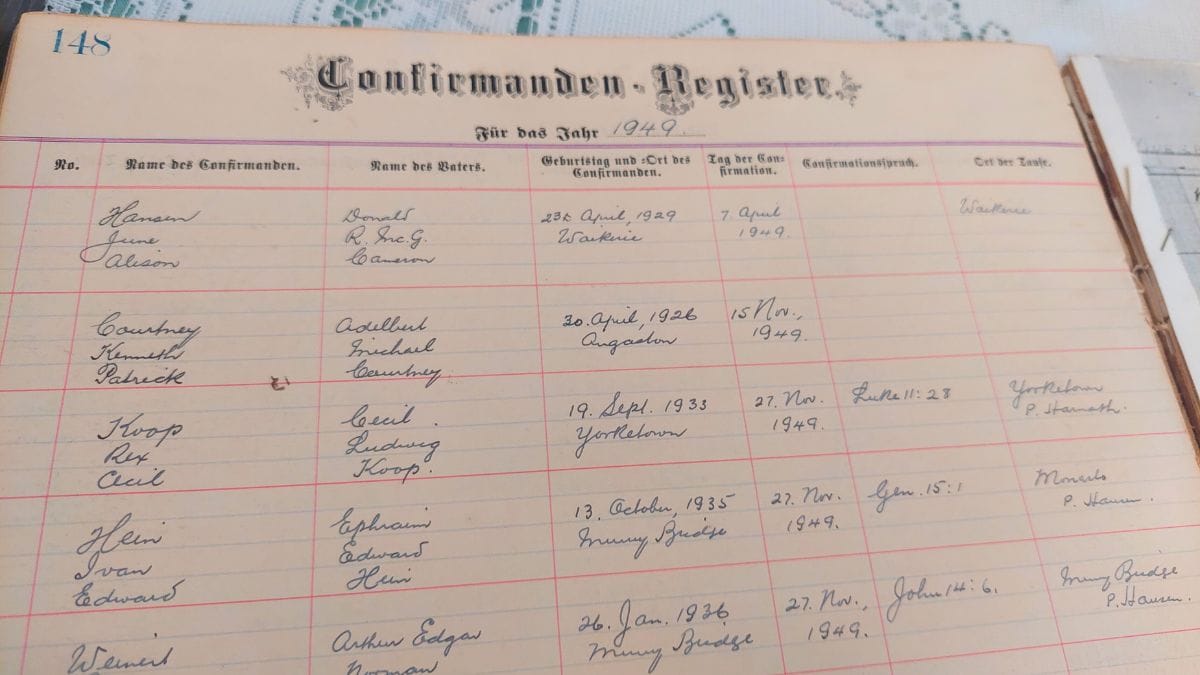 148
Confirmanden-Register.
Für das Jahr 1949.
No.
Name des Confirmanden.
Name des Vaters.
Geburtstag und =Ort des
Confirmanden.
Tag der Con=
firmation.
Confirmationsspruch.
Ort der Taufe.
Hansen
June
Alison
Donald
R. Mc.G.
Cameron
April, 1929
Waikerie
7 April
1949.
Waikerie
Courtney
Kenneth
Patrick
Adelbert
Michael
Courtney
30. April, 1926
Angaston
15 Nov.,
1949.
Koop
Rex
Cecil
Cecil.
Ludwig
Koop.
19. Sept. 1933
Yorketown
27. Nov.
1949.
Luke 11:28
Yorketown
P.
Hein
Ivan
Edward
Ephraim
Edward
Hein
13. October, 1935
Murray Bridge
27. Nov.
1949.
Gen. 15:1
Monarto
P. Hansen.
Weinert
Arthur Edgar
Norman
26. Jan. 1936
Murray Bridge
27. Nov.,
1949.
John 14:6.
Murray Bridge
P. Hansen.